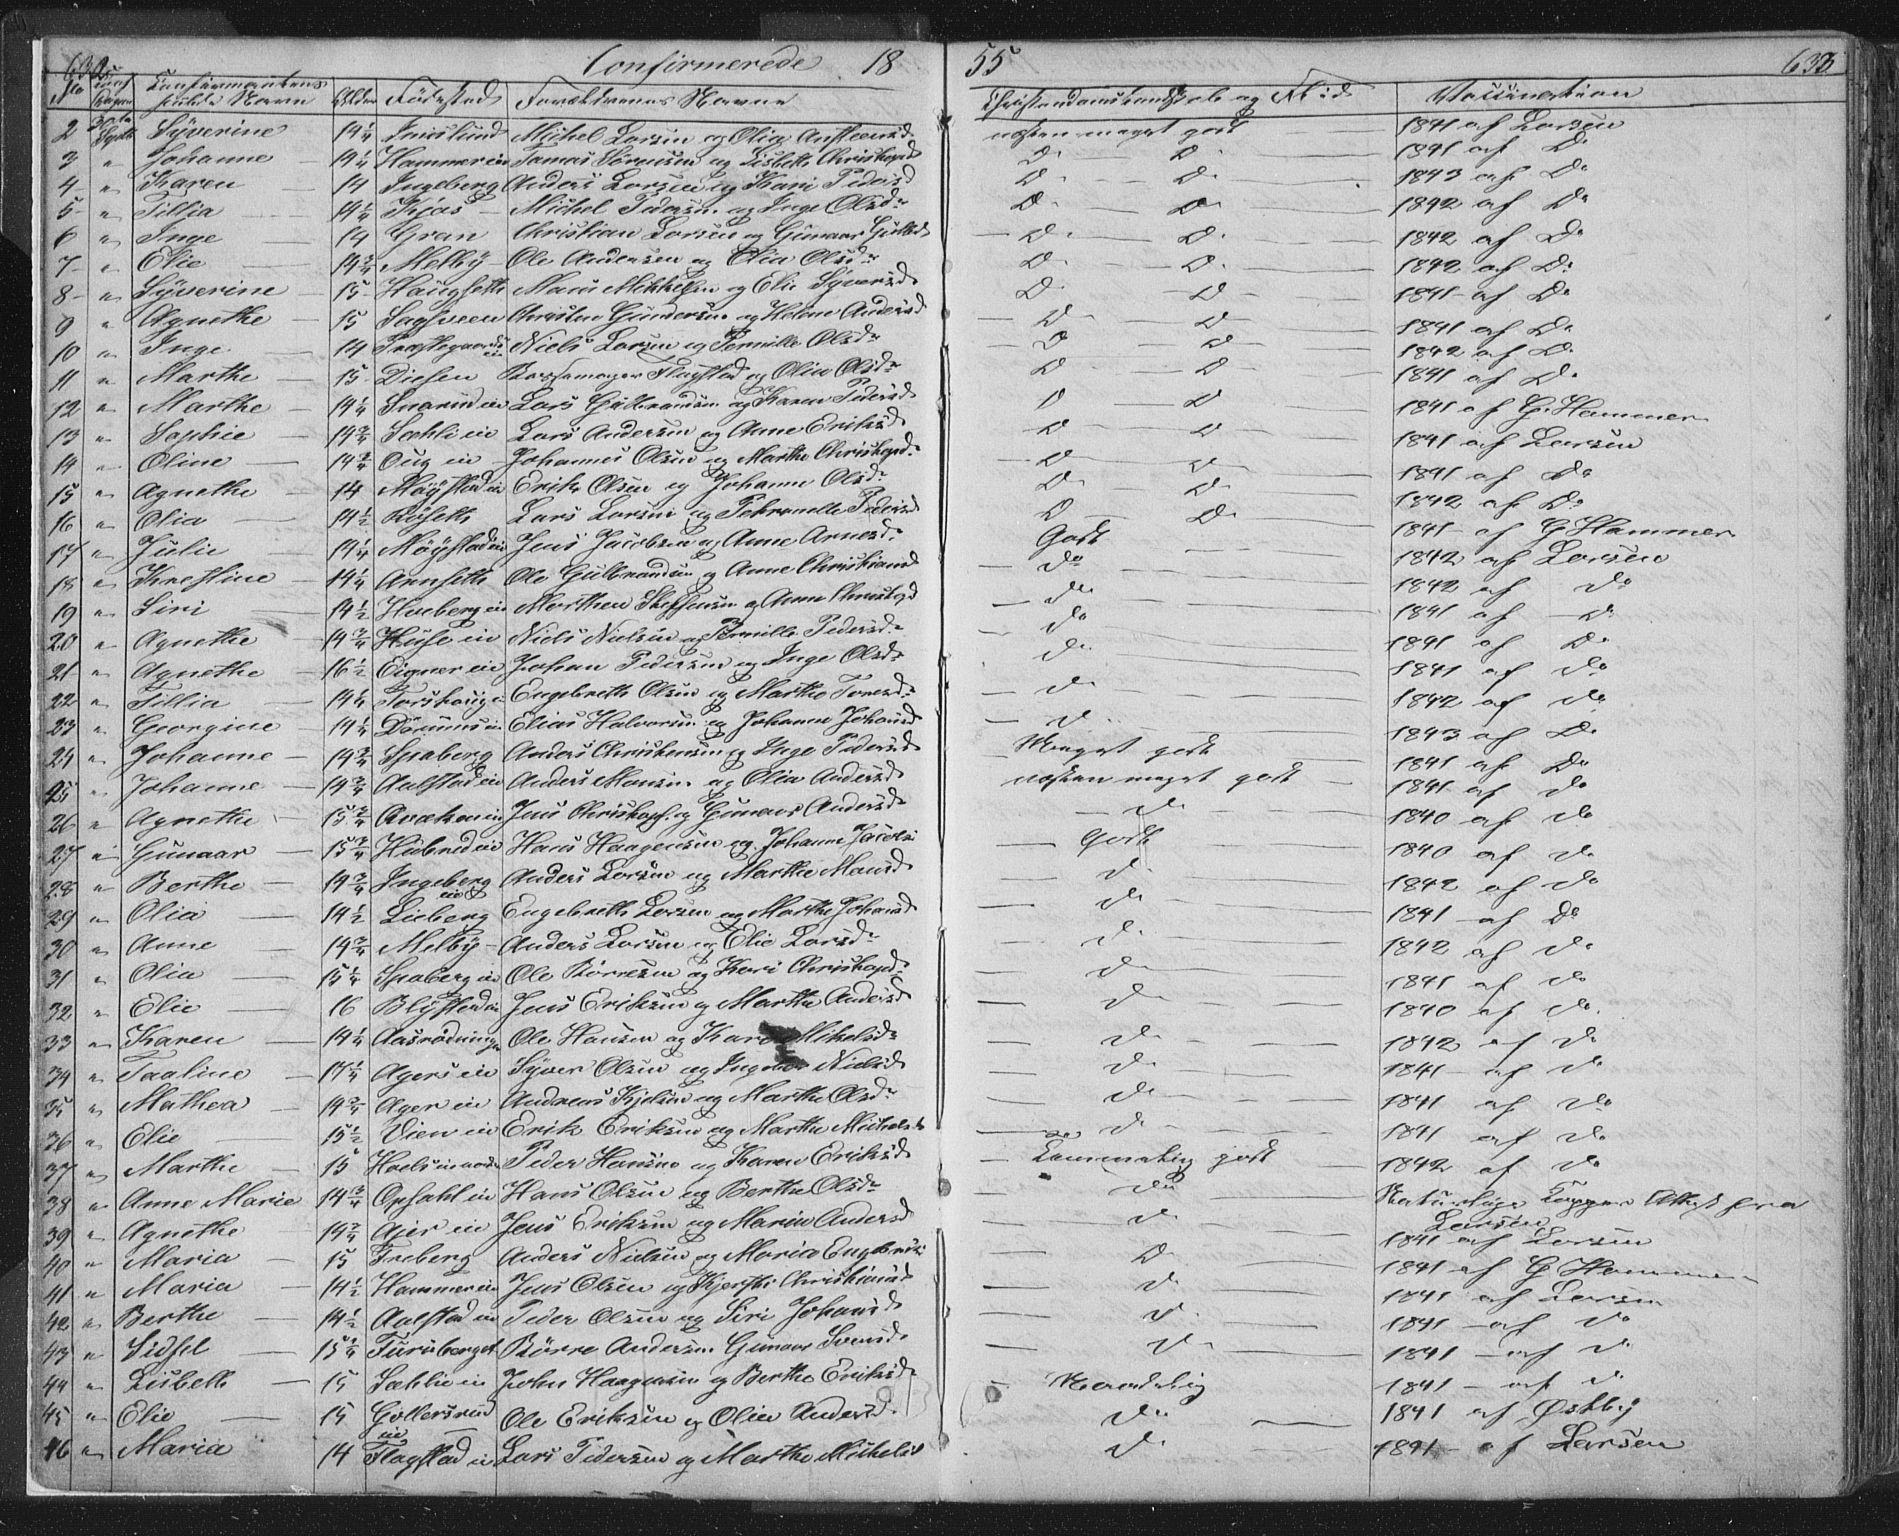 632 Confirmerede 18 55 633
No Confirmantens fulde Navn Alder Fødested Forældrenes Navne Christendomskundskab og Flid Vaccination
2 Syverine 14 1/4 Michel Larsen og Olia nesten meget godt 1841 af Larsen
3 " Johanne 14 1/4 Hammer ein Tomas Sørensen og Lisbeth Christophd D. D. 1841 af Do
4 " Karen 14 Ingeberg Anders Larsen og Kari Pedersd D. D. 1843 af Do
5 " Tillia 14 1/4 Kjøs Michel Pedersen og Inge Olsdr D. D. 1842 af Do
6 " Inge 14 Gran Christian Larsen og Gunaar D. D. 1842 af Do
7 " Elie 14 3/4 Melby Ole Andersen og Olia Olsdr D. D. 1842 af Do
8 " Syverine 15 Haugseth Mans Mikkelsen og Elie Syversd D. D. 1841 af Do
9 " Agnethe 15 Sagsveen Christen Gundersen og Helene Andersd D D 1841 af Do
10 " Inge 14 Præstegaards ein Niels Larsen og Pernille Olsdr D D 1842 af D.
11 " Marthe 15 Diesen Flagstad og Olia Olsdr D D 1841 af D.
12 " Marthe 14 1/4 Lars Gulbrandsen og Karen Pedersd D D 1841 af G. Hammer
13 " Sophie 14 3/4 Sæhli ein Lars Andersen og Anne Eriksd D D 1841 af Larsen
14 " Oline 14 3/4 Oug ein Johannes Olsen og Marthe Christophd. D D 1841 af Do
15 " Agnethe 14 Møystad ein Erik Olsen og Johanne Olsdr D. D. 1842 af Do
16 " Olia 14 1/2 Røseth Lars Larsen og Pehronelle Pedersd D D. 1841 af G Hammer
17 " Julie 14 1/4 Møystad ein Jens Jacobsen og Anne Arnesd. Godt 1842 af Larsen
18 " Krestine 14 1/4 Arnseth Ole Gulbrandsen og Anne Christiansd do 1842 af do
19 " Siri 14 1/2 ein Morthen Steffensen og Anne Christophd do 1841 af D.
20 " Agnethe 14 3/4 ein Niels Nielsen og Pernille Pedersd. do 1841 af D.
21 " Agnethe 16 1/2 Eigner ein Johan Pedersen og Inge Olsdr do 1841 af do
22 " Tillia 14 1/4 Engebreth Olsen og Marthe do 1842 af do
23 " Georgine 14 1/4 ein Elias Halvorsen og Johanne Johansd d. 1843 af D.
24 " Johanne 14 3/4 Spaberg Anders Christensen og Inge Pedersd Meget godt 1841 af Do
25 " Johanne 14 3/4 Aalstad ein Anders Mansen og Olia Andersd nesten meget godt 1841 af do
26 " Agnethe 15 3/4 Qvæken ein Jens Christoph. og Gunaar Andersd do 1840 af do
27 " Gunaar 15 3/4 ein Hans Haagensen og Johanne Godt 1840 af do
28 " Berthe 14 3/4 Ingeberg ein Anders Larsen og Marthe Mansd d. 1842 af do
29 " Olia 14 1/2 Lieberg Engebreth Larsen og Marthe Johansd do 1841 af Do
30 " Anne 14 3/4 Melby Anders Larsen og Elie Larsdr d. 1842 af do
31 " Olia 15 1/4 Spaberg ein Ole Børresen og Kari Christophd. d. 1841 af do
32 " Elie 16 Blystad ein Jens Eriksen og Marthe Andersd d. 1840 af do.
33 " Karen 14 1/4 Ole Hansen og Kari Mikelsdr d. 1842 af do
34 " Taaline 14 1/4 Agers ein Syver Olsen og Nielsd d. 1841 af do
35 " Mathea 14 3/4 Ager ein Andreas og Marthe Olsdr do 1841 af do
36 " Elie 15 1/2 Vien ein Erik Eriksen og Marthe Michelsd d. 1841 af do
37 " Marthe 15 Peder Hansen og Karen Eriksd Temmelig godt 1842 af do
38 " Anne Marie 14 3/4 Opsahl ein Hans Olsen og Berthe Olsdr do Naturlige Kopper Attest fra Larsen
39 " Agnethe 14 3/4 Ajer ein Jens Eriksen og Marie Andersd d. 1841 af Larsen
40 " Maria 15 Freberg Anders Nielsen og Maria D. 1841 af G Hammer
41 " Maria 14 1/2 Hammer ein Jens Olsen og Kjersti Christiansd d. 1841 af Larsen
42 " Berthe 14 1/2 Aalstad ein Peder Olsen og Siri Johansd d. 1841 af do
43 " Sidsel 15 3/4 Furuberget Børre Andersen Gunaar Svensdr d. 1841 af d.
44 " Lisbeth 15 Sæhlie ein John Haagensen og Berthe Eriksdr Maadelig 1841 af d.
45 " Elie 15 Gollersrud ein Ole Eriksen og Olia Andersd do 1841 af Østby
46 " Maria 14 Flagstad ein Lars Pedersen og Marthe Michelsd d. 1841 af Larsen